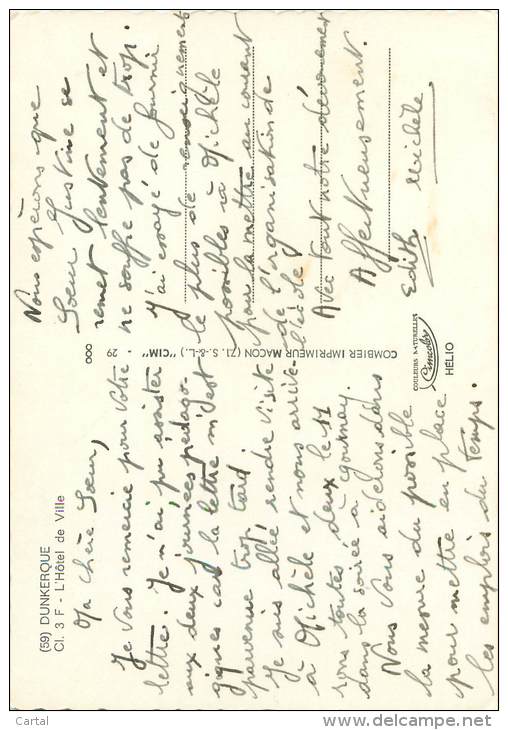 (59) DUNKERQUE
Cl. 3 F - L'Hôtel de Ville
Ma chère Soeur,
Je vous remercie pour votre
lettre. Je n'ai pu assister
aux deux journées pédago-
giques car la lettre m'est
parvenue trop tard
Je suis allée rendre visite
à Michèle et nous arrive-
rons toutes deux le 11
dans la soirée à Gournay.
Nous vous aiderons dans
la mesure du possible
pour mettre en place
les emplois du temps.
000
29
COMBIER IMPRIMEUR MACON (71. S.-&-L.) "CIM"
COULEURS NATURELLES
Cimcolor
HÉLIO
Nous espérons que
Soeur Justine se
remet lentement et
ne souffre pas de trop.
J'ai essayé de fournir
le plus de renseignements
possibles à Michèle
pour la mettre au courant
de l'organisation de
l'école
Avec tout notre dévouement
Affectueusement.
Edith Michèle
Cartal
www.delcampe.net